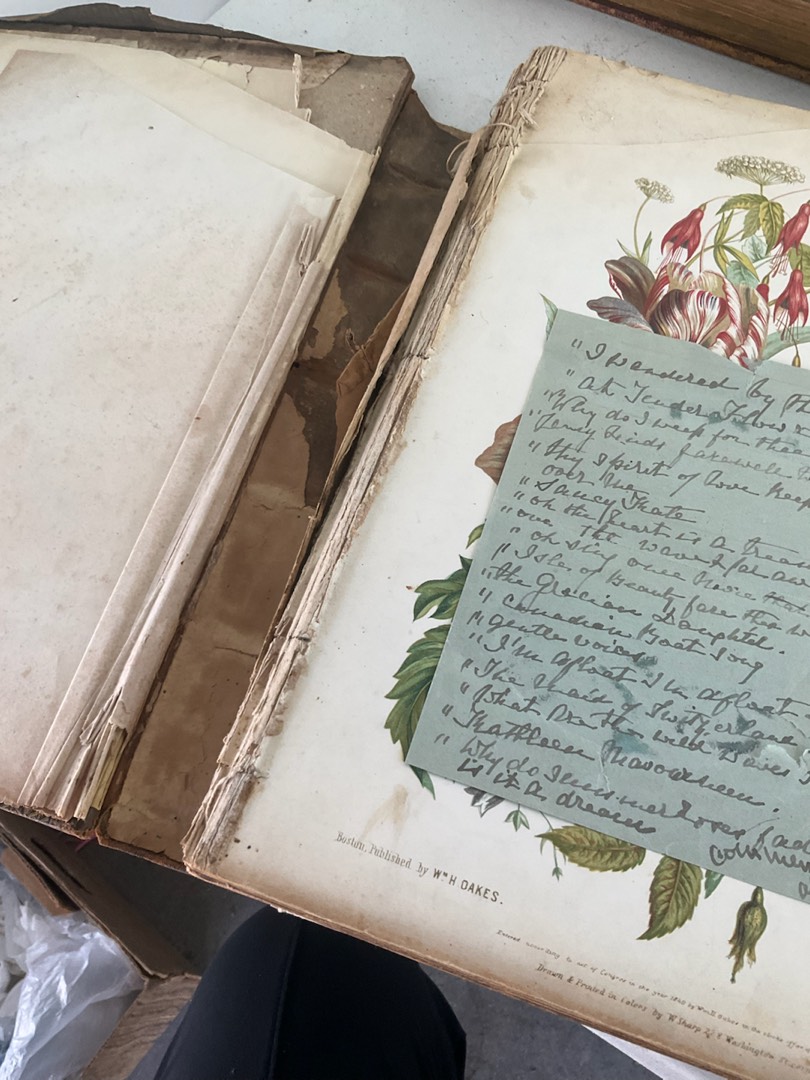 " I wandered by the
" At Tender
" Why do I weep for thee
Jenny Linds farewell
" thy spirit of love keep
over me
" Saucy Kate
" oh the heart is a
" one the wave
" oh sing once more
" Isle of Beauty fare thee
" the Grecian Daughter.
" Canadian Boat Song
" gentle voices
" I'm afloat I'm afloat
" The maid of
" What are the wild waves
" Kathleen Mavourneen.
" Why do Summer Roses fad
is it a dream
Boston, Published by Wm H OAKES.
Entered according to act of Congress in the year by Wm H Oakes in the
Drawn & Printed in Colors by W Sharp & Washington